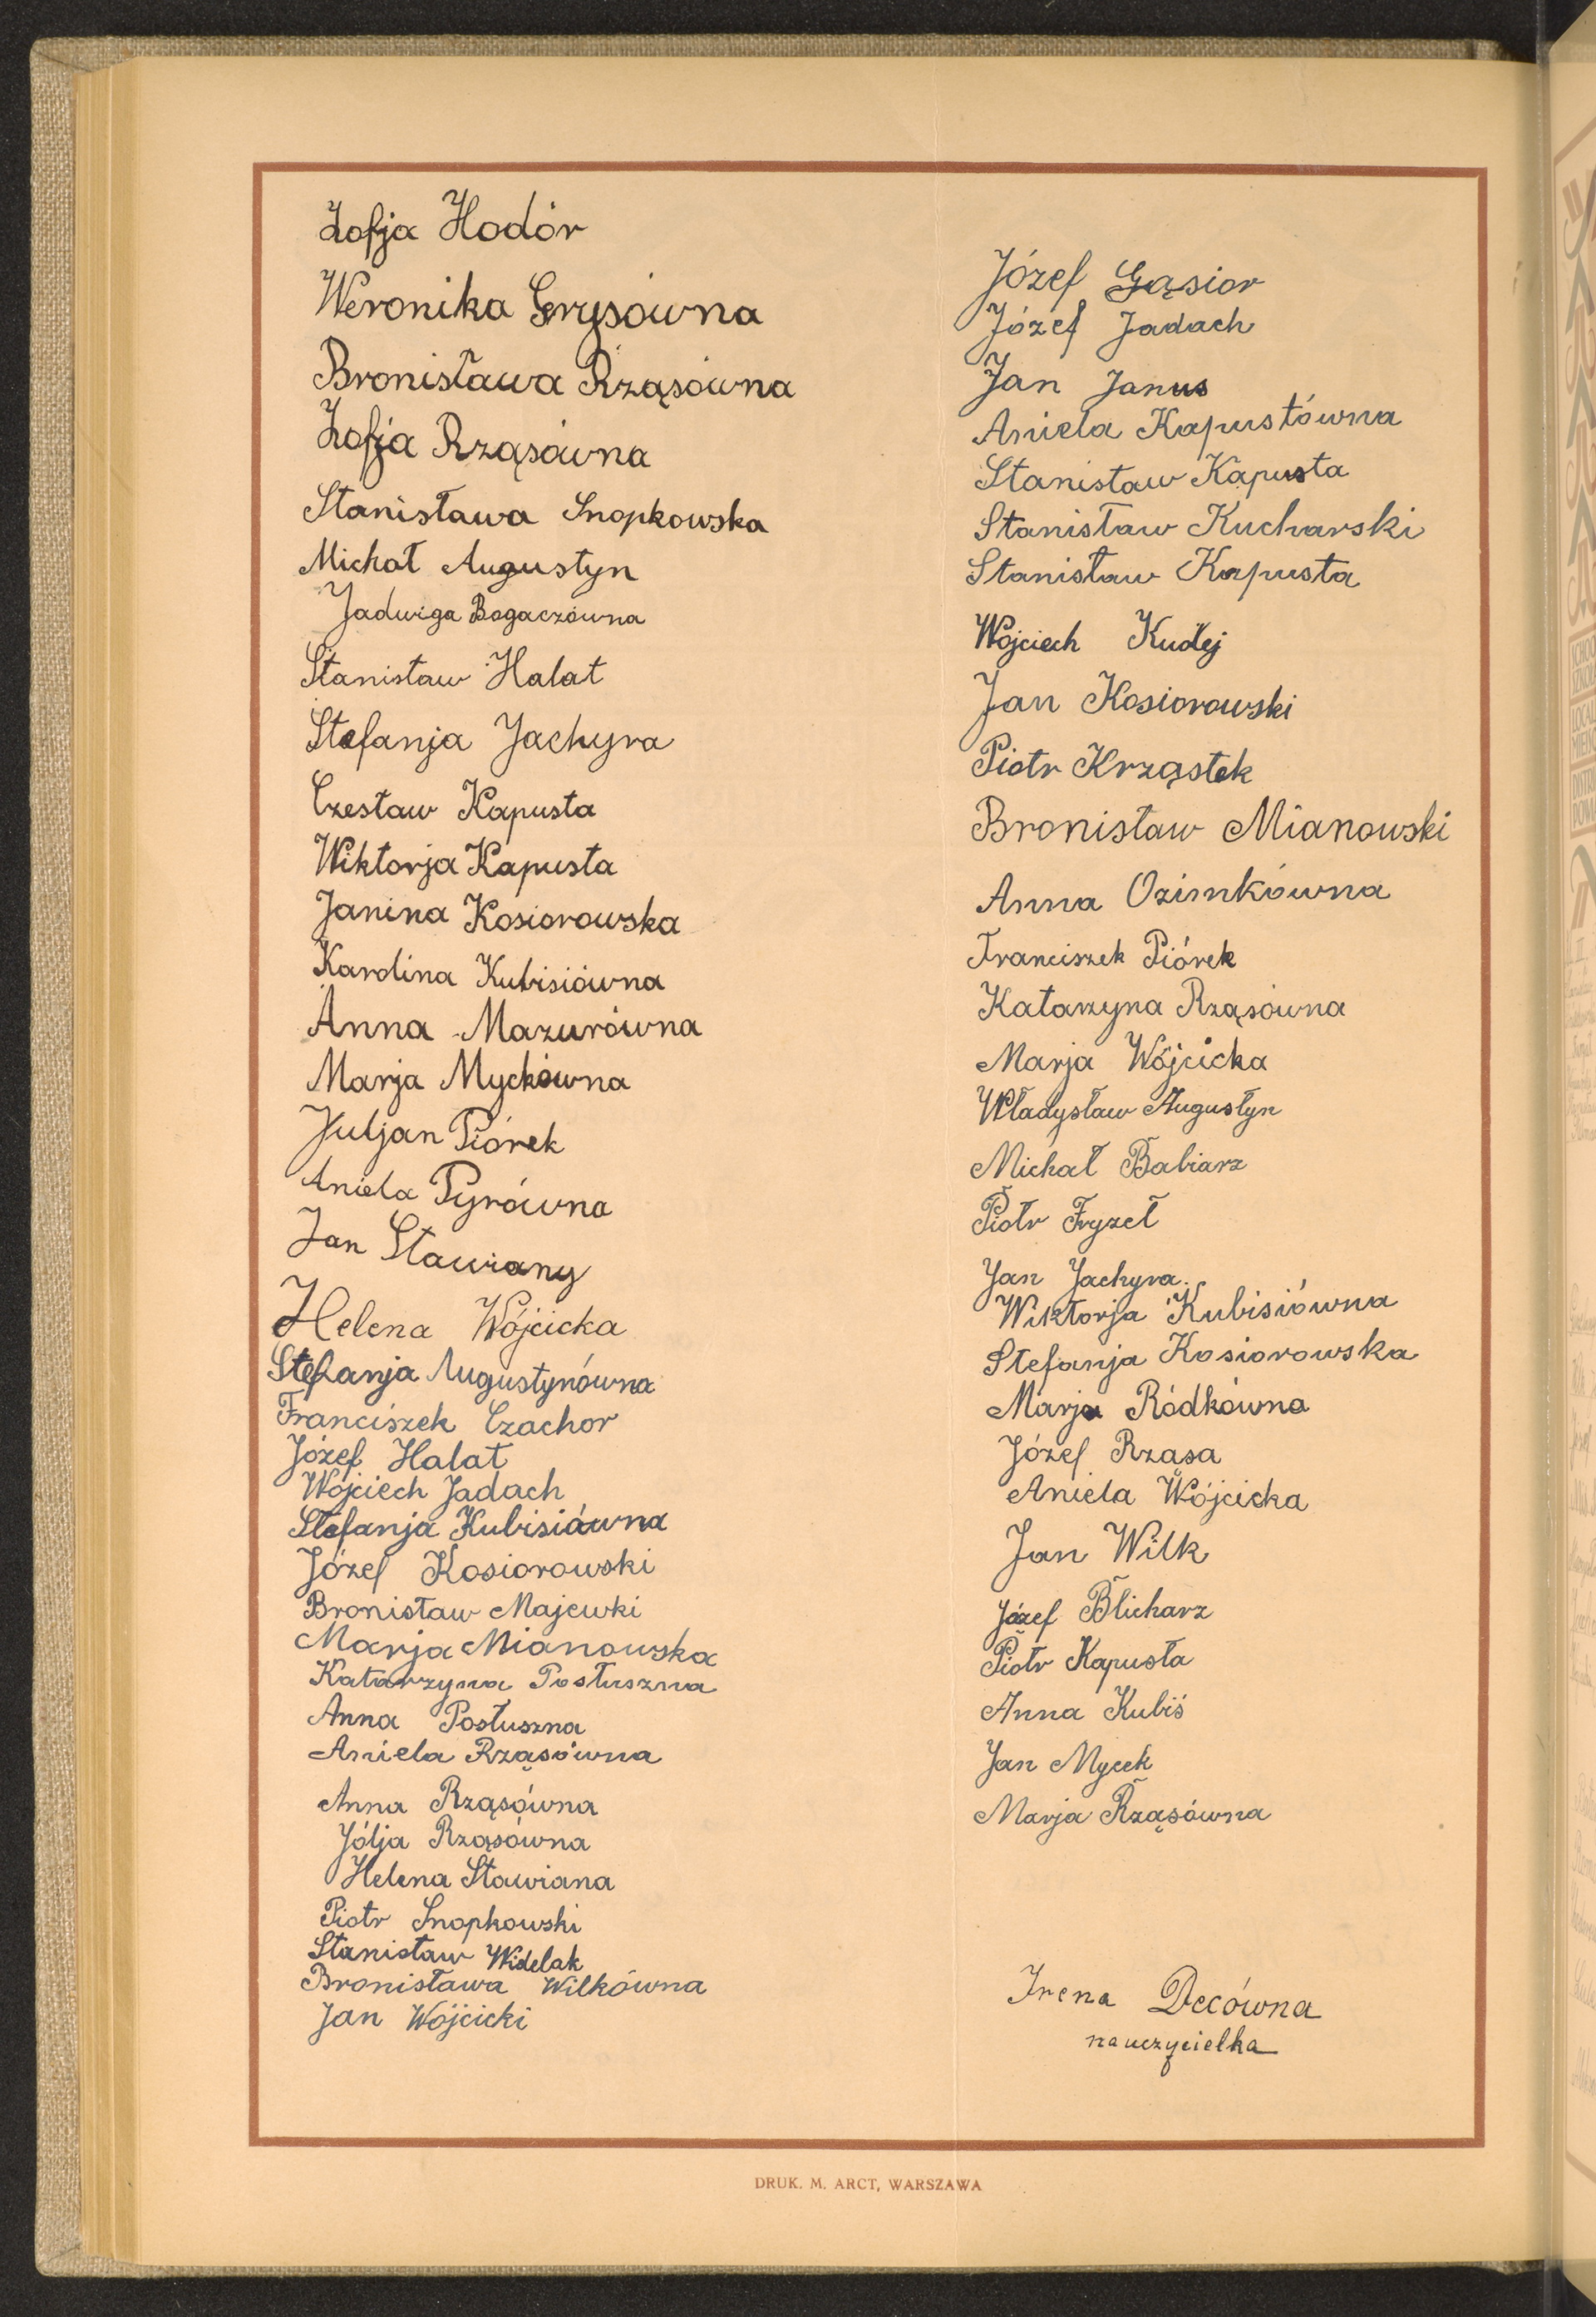 Zofja Hodór
Weronika Grysówna
Bronisława Rząsówna
Zofja Rząsówna
Stanisława Snopkowska
Michał Augustyn
Jadwiga Bogaczówna
Stanisław Halat
Stefanja Jachyra
Czesław Kapusta
Wiktorja Kapusta
Janina Kosiorowska
Karolina Kubisiówna
Anna Mazurówna
Marja Myckówna
Juljan Piórek
Aniela Pyrówna
Jan Stawiany
Helena Wójcicka
Stefanja Augustynówna
Franciszek Czachor
Józef Halat
Wojciech Jadach
Stefanja Kubisiówna
Józef Kosiorowski
Bronisław Majewki
Marja Mianowska
Katarzyna Posłuszna
Anna Posłuszna
Aniela Rząsówna
Anna Rząsówna
Jólja Rząsówna
Helena Stawiana
Piotr Snopkowski
Stanisław Widelak
Bronisława Wilkówna
Jan Wójcicki
Józef Gąsior
Józef Jadach
Jan Janus
Aniela Kapustówna
Stanisław Kapusta
Stanisław Kucharski
Stanisław Kapusta
Wojciech Kudłej
Jan Kosiorowski
Piotr Krząstek
Bronisław Mianowski
Anna Ozimkówna
Franciszek Piórek
Katarzyna Rząsówna
Marja Wójcicka
Władysław Augustyn
Michał Babiarz
Piotr Fryzeł
Jan Jachyra.
Wiktorja Kubisiówna
Stefanja Kosiorowska
Marja Ródkówna
Józef Rząsa
Aniela Wójcicka
Jan Wilk
Józef Blicharz
Piotr Kapusta
Anna Kubiś
Jan Mycek
Marja Rząsówna
Irena Decówna
nauczycielka
DRUK. M. ARCT, WARSZAWA